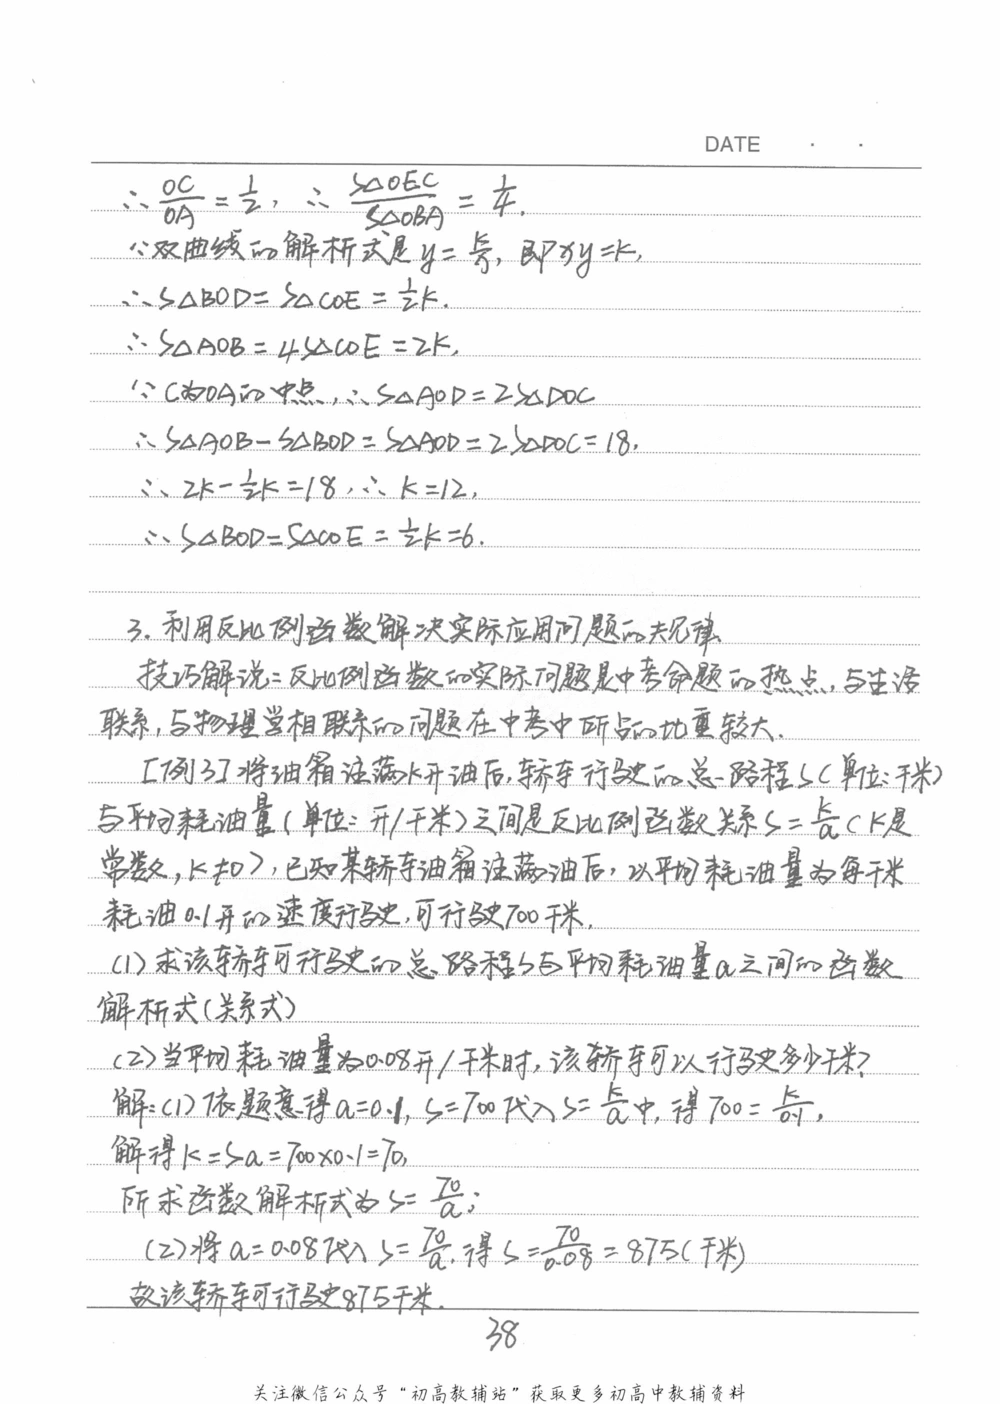 DATE · ·
∴ OC/OA = 1/2, ∴ S△OEC/S△OBA = 1/4.
∵双曲线的解析式是y=k/x, 即xy=k,
∴S△BOD=S△COE=1/2k.
∴S△AOB=4S△COE=2k,
∵C为OA的中点,∴S△AOD=2S△DOC
∴S△AOB-S△BOD=S△AOD=2S△DOC=18,
∴2k-1/2k=18,∴k=12,
∴S△BOD=S△COE=1/2k=6.
3.利用反比例函数解决实际应用问题的大规律
技巧解说:反比例函数的实际问题是中考命题的热点,与生活
联系,与物理学相联系的问题在中考中所占的比重较大.
[例3]将油箱注满k升油后,轿车行驶的总路程S(单位:千米)
与平均耗油量(单位:升/千米)之间是反比例函数关系S=k/a(k是
常数,k≠0),已知某轿车油箱注满油后,以平均耗油量为每千米
耗油0.1升的速度行驶,可行驶700千米.
(1)求该轿车可行驶的总路程S与平均耗油量a之间的函数
解析式(关系式)
(2)当平均耗油量为0.08升/千米时,该轿车可以行驶多少千米?
解:(1)依题意得a=0.1,S=700代入S=k/a中,得700=k/0.1,
解得k=Sa=700×0.1=70,
所求函数解析式为S=70/a;
(2)将a=0.08代入S=70/a,得S=70/0.08=875(千米)
故该轿车可行驶875千米.
38
关注微信公众号“初高教辅站”获取更多初高中教辅资料